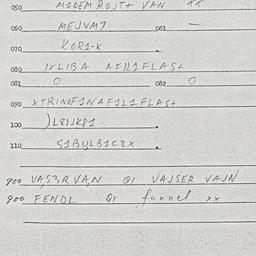 050 MIDEM ROJT+ VAN XX
060 MEJVM7 061 -
070 KOR1-X .
080 IXLIBA AFIL1FLAS+
081 0 082 0
090 XTRINKF1NAF1L1FLAS+
100 )L81JK81 .
110 S1BULB1C3X .
900 VAS3RVAN Q1 VAJSER VAJN
900 FENDL Q1 funnel xx